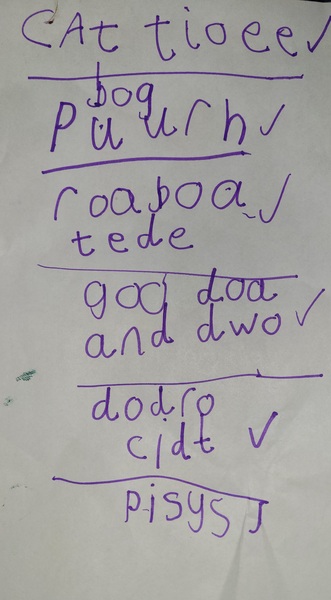 CAt tioee ✓
bog
puurh ✓
roaboa ✓
tede
god doa
and dwo ✓
dodro
cidt ✓
pisys